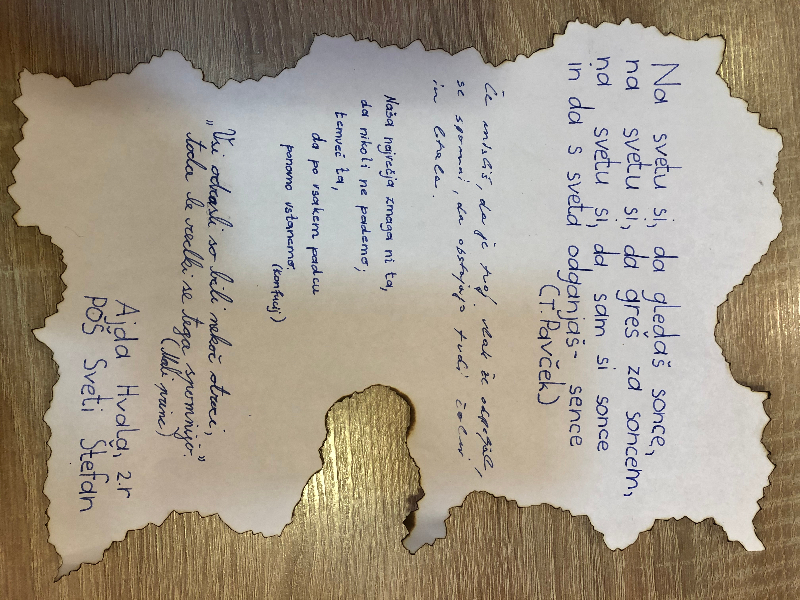 Na svetu si, da gledaš sonce,
na svetu si, da greš za soncem,
na svetu si, da sam si sonce
in da s sveta odganjaš - sence
(T. Pavček)
Če misliš, da je tvoj vlak že odpeljal,
se spomni, da obstajajo tudi
in letala.
Naša največja zmaga ni ta,
da nikoli ne pademo,
temveč ta,
da po vsakem padcu
ponovno vstanemo.
(Konfucij)
"Vsi odrasli so bili nekoč otroci,
toda le redki se tega spomnijo."
(Mali princ)
Ajda Hvala, 2.r
POŠ Sveti Štefan